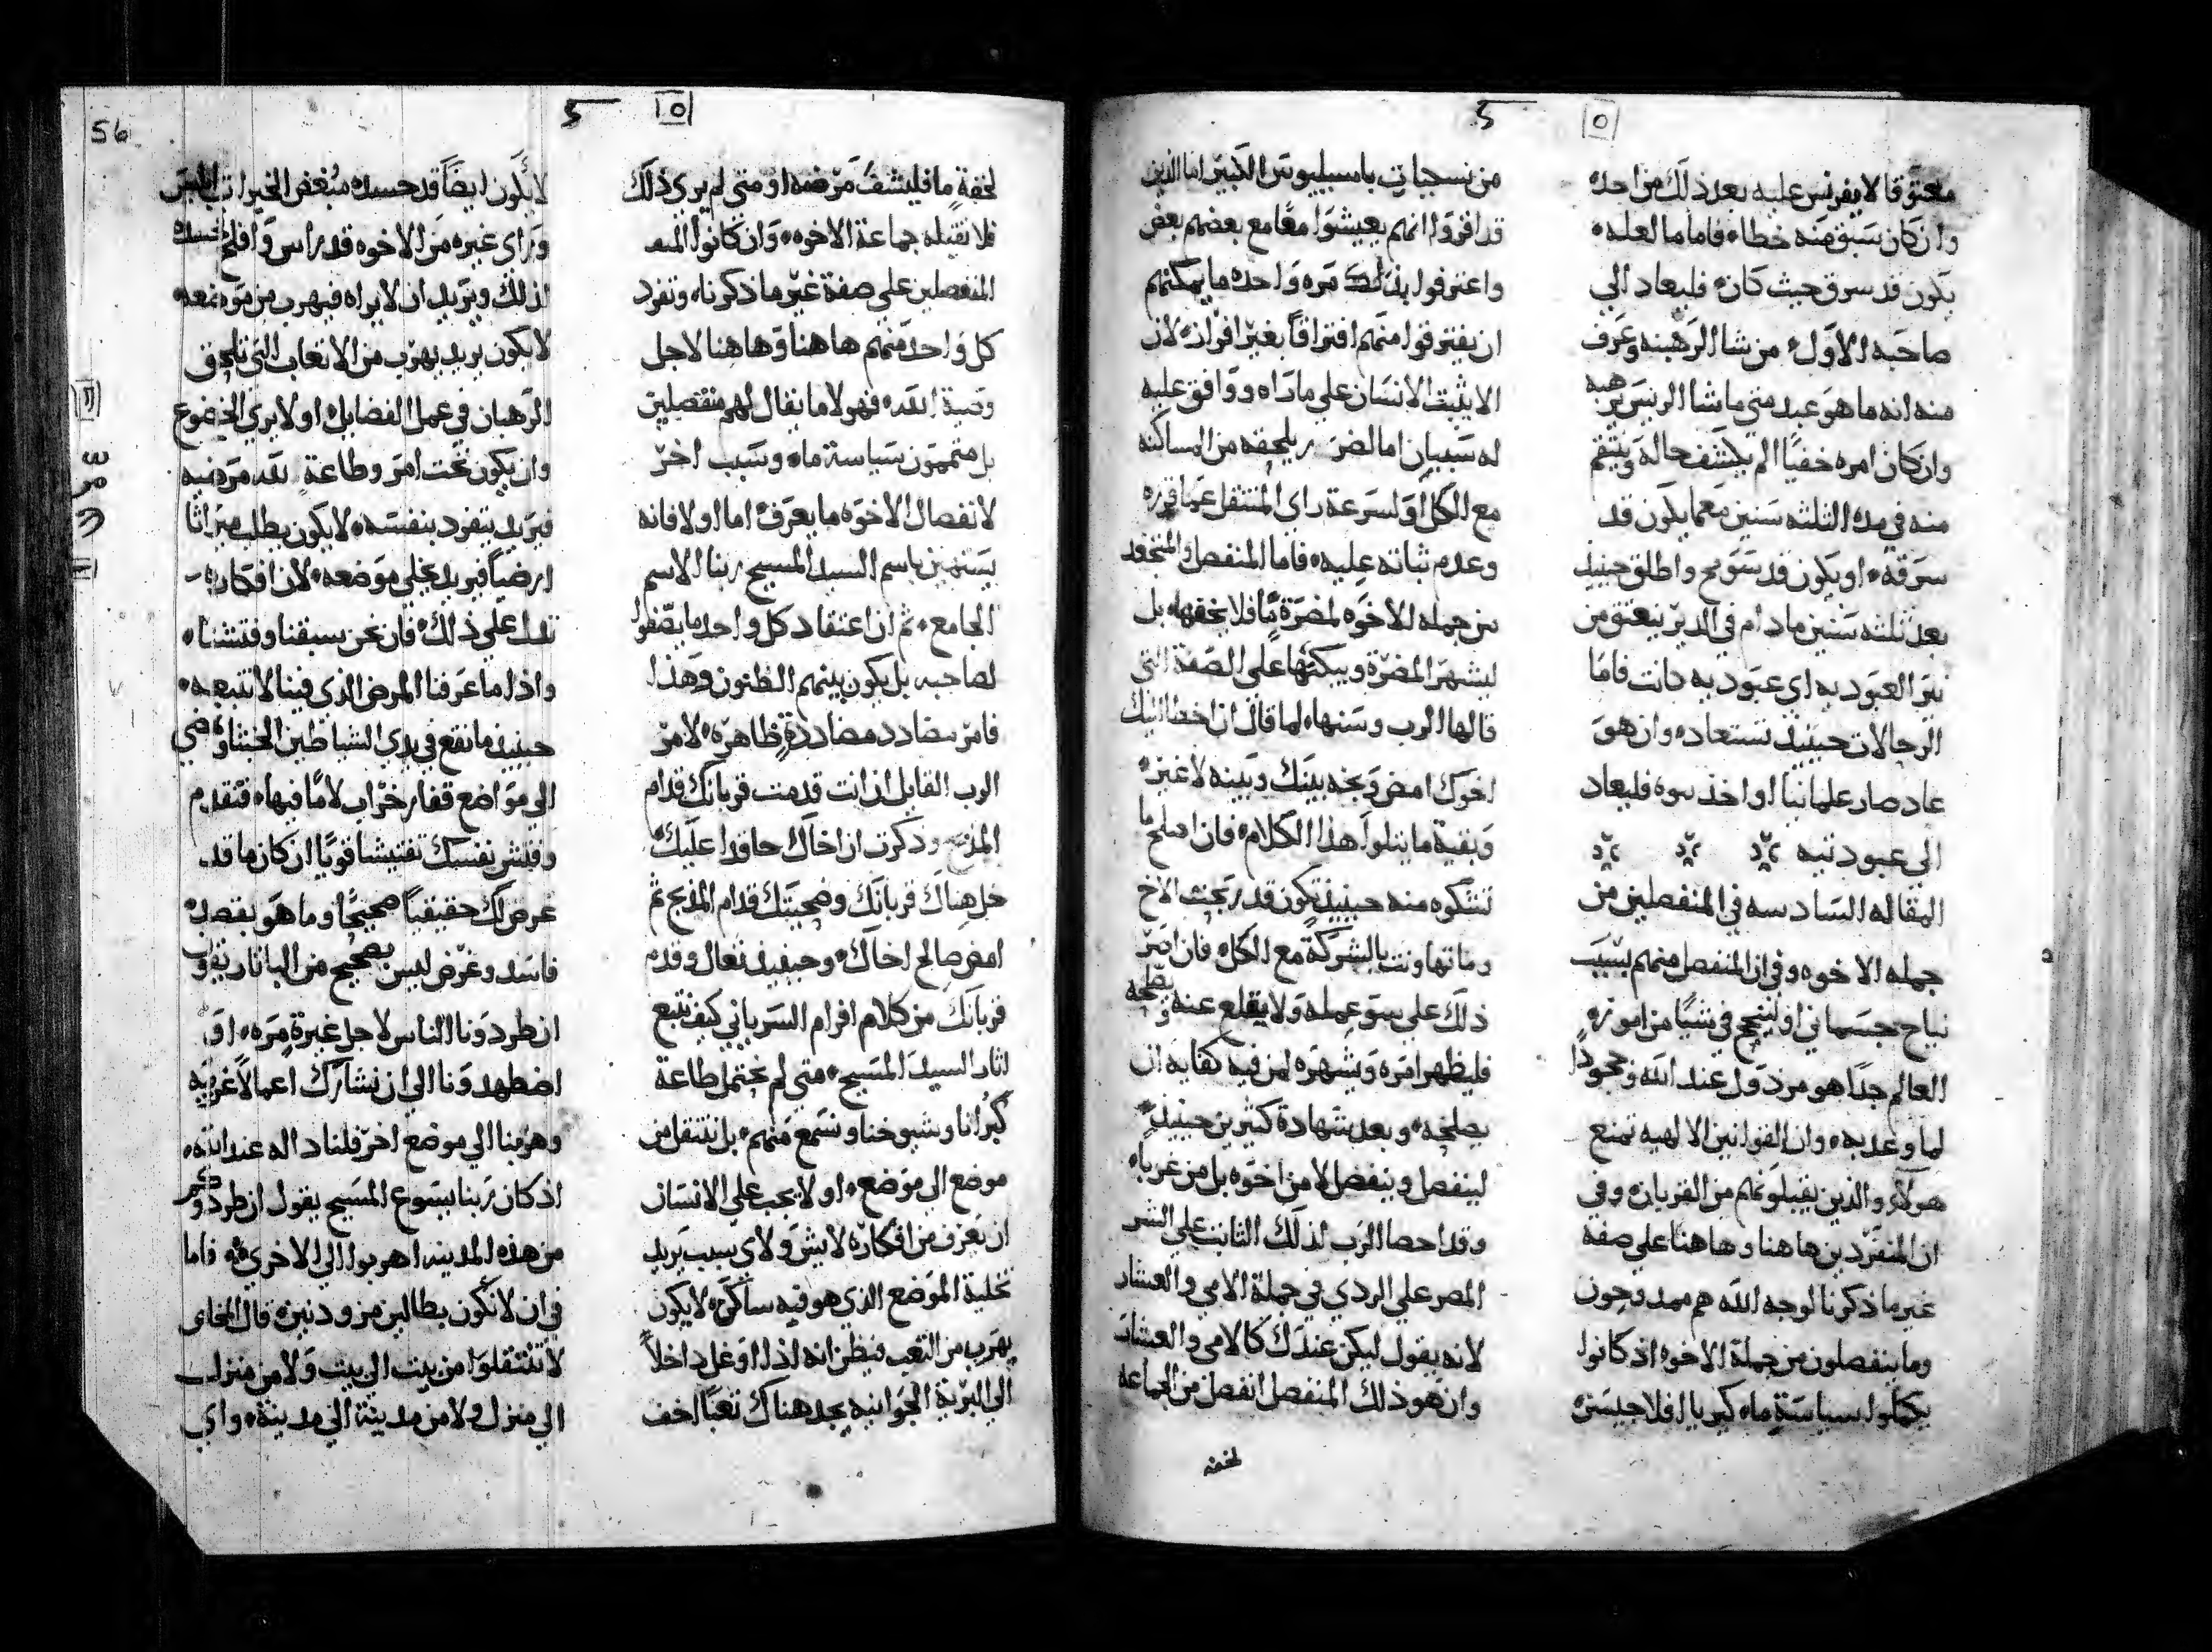 معتوقا لا يفرنس عليه بعد ذلك من احد
وان كان سبق منه خطاء فاما ما لعله
يكون قد سرق حيث كان فليعاد الي
صاحبه الاول من شا الرهبنه وعرف
منه انه ما هو عبد متي ما شا الريس يرهبه
وان كان امره خفيا لم يكشف حاله وينتقم
منه في مده الثلثه سنين معما يكون قد
سرقه او يكون قد سومح واطلق حينيذ
بعد ثلثه سنين ما دام في الدير ينعتق من
نير العبوديه اي عبوديه كانت فاما
الرحالات حينيذ تستعاد وان هو
عاد صار علمانيا او اخذ سوه فليعاد
الي عبوديته
المقاله السادسه في المنفصلين من
جمله الاخوه وفي ان المنفصل منهم بسبب
نياح جسماني او لينجح في شيا من امور
العالم جدا هو مردول عند الله وجحودا
لما وعد به وان القوانين الالهيه تمنع
هولاء والذين يقبلونهم من القربان وفي
ان المنفردين هاهنا وهاهنا علي صفه
غير ما ذكرنا لوجه الله هم ممدوحون
وما ينفصلون من جملة الاخوه اذ كانوا
يكملوا سياسة ما
من نسجيات باسيليوس الكبير اما الذين
قد اقروا انهم يعيشوا معا مع بعضهم بعض
واعترفوا بذلك مره واحده ما يمكنهم
ان يفترقوا منهم افتراقا بغير افراز لان
الا يثبت الانسان علي ما راه ووافق عليه
له سببان اما لضرر يلحقه من المساكنه
مع الكل او لسرعة راي المنتقل عما قرره
وعدم ثباته عليه فاما المنفصل
من جمله الاخوه لمضرة ما فلا يخفيها بل
ليشهر المضرة ويبكتها علي الصفة التي
قالها الرب وسنها لما قال ان اخطا اليك
اخوك امض وبخه بينك وبينه لا غير
وبقية ما يتلوا هذا الكلام فان اصلح ما
تشكوه منه حينيذ تكون قد ربحت الاخ
وما تهاونت بالشركة مع الكل فان اصر
ذلك علي سو عمله ولا يقلع عنه
فليظهر امره ويشهره لمن فيه كفايه ان
يصلحه وبعد شهادة كثيرين حينيذ
لينفصل وينفصل لا من اخوه بل من غربا
وقد احصا الرب لذلك الثابت علي الشر
المصر علي الردي في جملة الامي والعشار
لانه يقول ليكن عندك كالامي والعشار
وان هو ذلك المنفصل انفصل من الجماعه
لخفه
لخفة ما فليشف مرضه او متي لم يري ذلك
فلا تقبله جماعة الاخوه وان كانوا المنف
المنفصلين علي صفة غير ما ذكرنا وتفرد
كل واحد منهم هاهنا وهاهنا لاجل
وصية الله فهولا ما يقال لهم منفصلين
بل متممون سياسة ما وسبب اخر
لانفصال الاخوه ما يعرف اما اولا فانه
يستهين باسم السيد المسيح ربنا الاسم
الجامع ثم ان اعتقاد كل واحد ما يصفوا
لصاحبه بل يكون بينهم الظنون وهذا
فامر مضادد مضاددة ظاهره لامر
الرب القايل ان انت قدمت قربانك قدام
المذبح وذكرت ان اخاك حاقدا عليك
خل هناك قربانك وضحيتك قدام المذبح ثم
امض صالح اخاك وحينيذ تعال وقدم
قربانك من كلام افرام السرياني كيف نتبع
اثار السيد المسيح متي لم نحتمل طاعة
كبرانا وشيوخنا ونسمع منهم بل ننتقل من
موضع الي موضع اولا يجب علي الانسان
ان يعرف من افكاره لايش ولاي سبب يريد
تخلية الموضع الذي هو فيه ساكن لا يكون
يهرب من التعب فيظن انه اذا اوغل داخلا
الي البرية الجوانيه يجد هناك تعبا اخف
56
لا يكون ايضا قد حسده مبغض الخيرات ابليس
وراي غيره من الاخوه قد راس وافلح
لذلك ويريد ان لا يراه فيهرب من موضعه
لا يكون يريد يهرب من الاتعاب التي تلحق
الرهبان في عمل الفضايل او لا يري الخضوع
وان يكون تحت امر وطاعة
فيريد يتفرد بنفسه لا يكون يطلب ميراثا
ارضيا فيريد يخلي موضعه لان افكاره
تدل علي ذلك فان نحن سبقنا وفتشنا
واذا ما عرفنا المرض الذي فينا لا نتبعه
حينيذ ما نقع في يدي الشياطين الخبثا ونمضي
الي مواضع قفار خراب لا ما فيها فتقدم
وفتش نفسك تفتيشا قويا ان كان ما قد
عرض لك حقيقيا صحيحا وما هو بقصد
فاسد وغرض ليس بصحيح من البا
ان طردونا الناس لاجل غيرة مره او
اضطهدونا الي ان نشارك اعمالا غريبه
وهربنا الي موضع اخر فلنا داله عند الله
اذ كان ربنا يسوع المسيح يقول ان طردوكم
من هذه المدينه اهربوا الي الاخري فاما
في ان لا نكون بطالين من ودنين قال
لا تنتقلوا من بيت الي بيت ولا من منزل
الي منزل ولا من مدينة الي مدينة واي